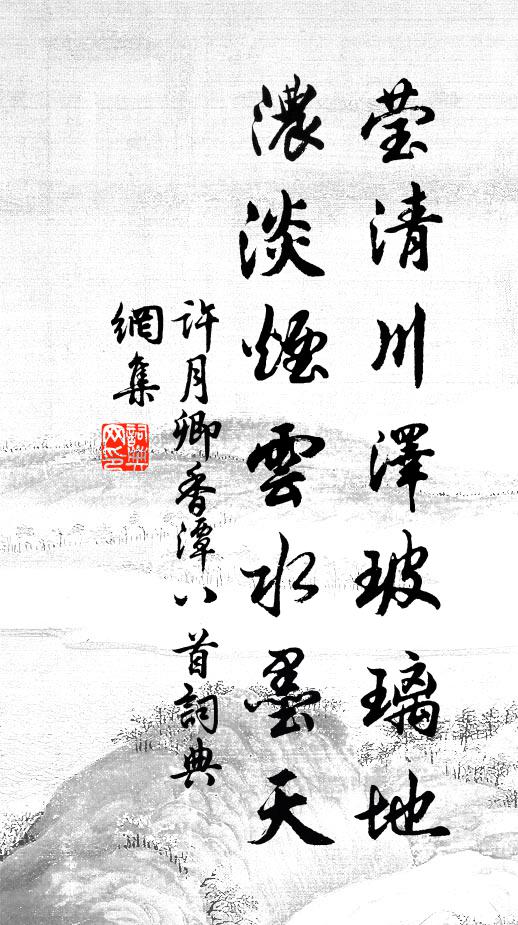 莹清川澤玻璃地
濃淡煙雲水墨天
許月卿香潭八首詞典
網集